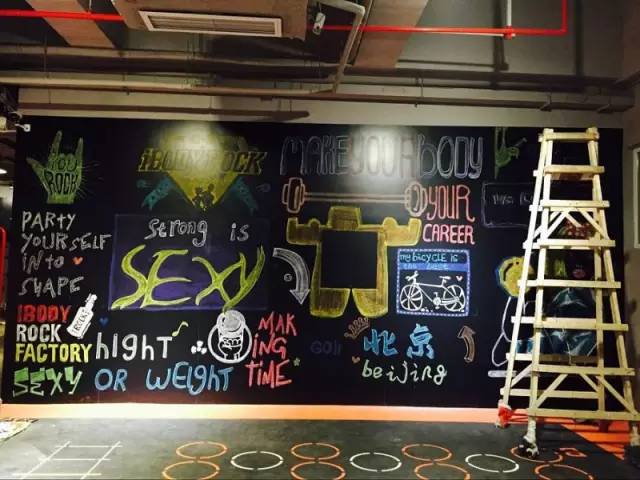 YOU
ROCK
iBODYROCK
MAKE YOUR BODY
YOUR
CAREER
PARTY
YOURSELF
INTO
SHAPE
Strong is
SEXY
my bicycle is
IBODY
ROCK
FACTORY
SEXY
hIGHT
OR WEIGHT
MAK
ING
TIME
北京
beijing